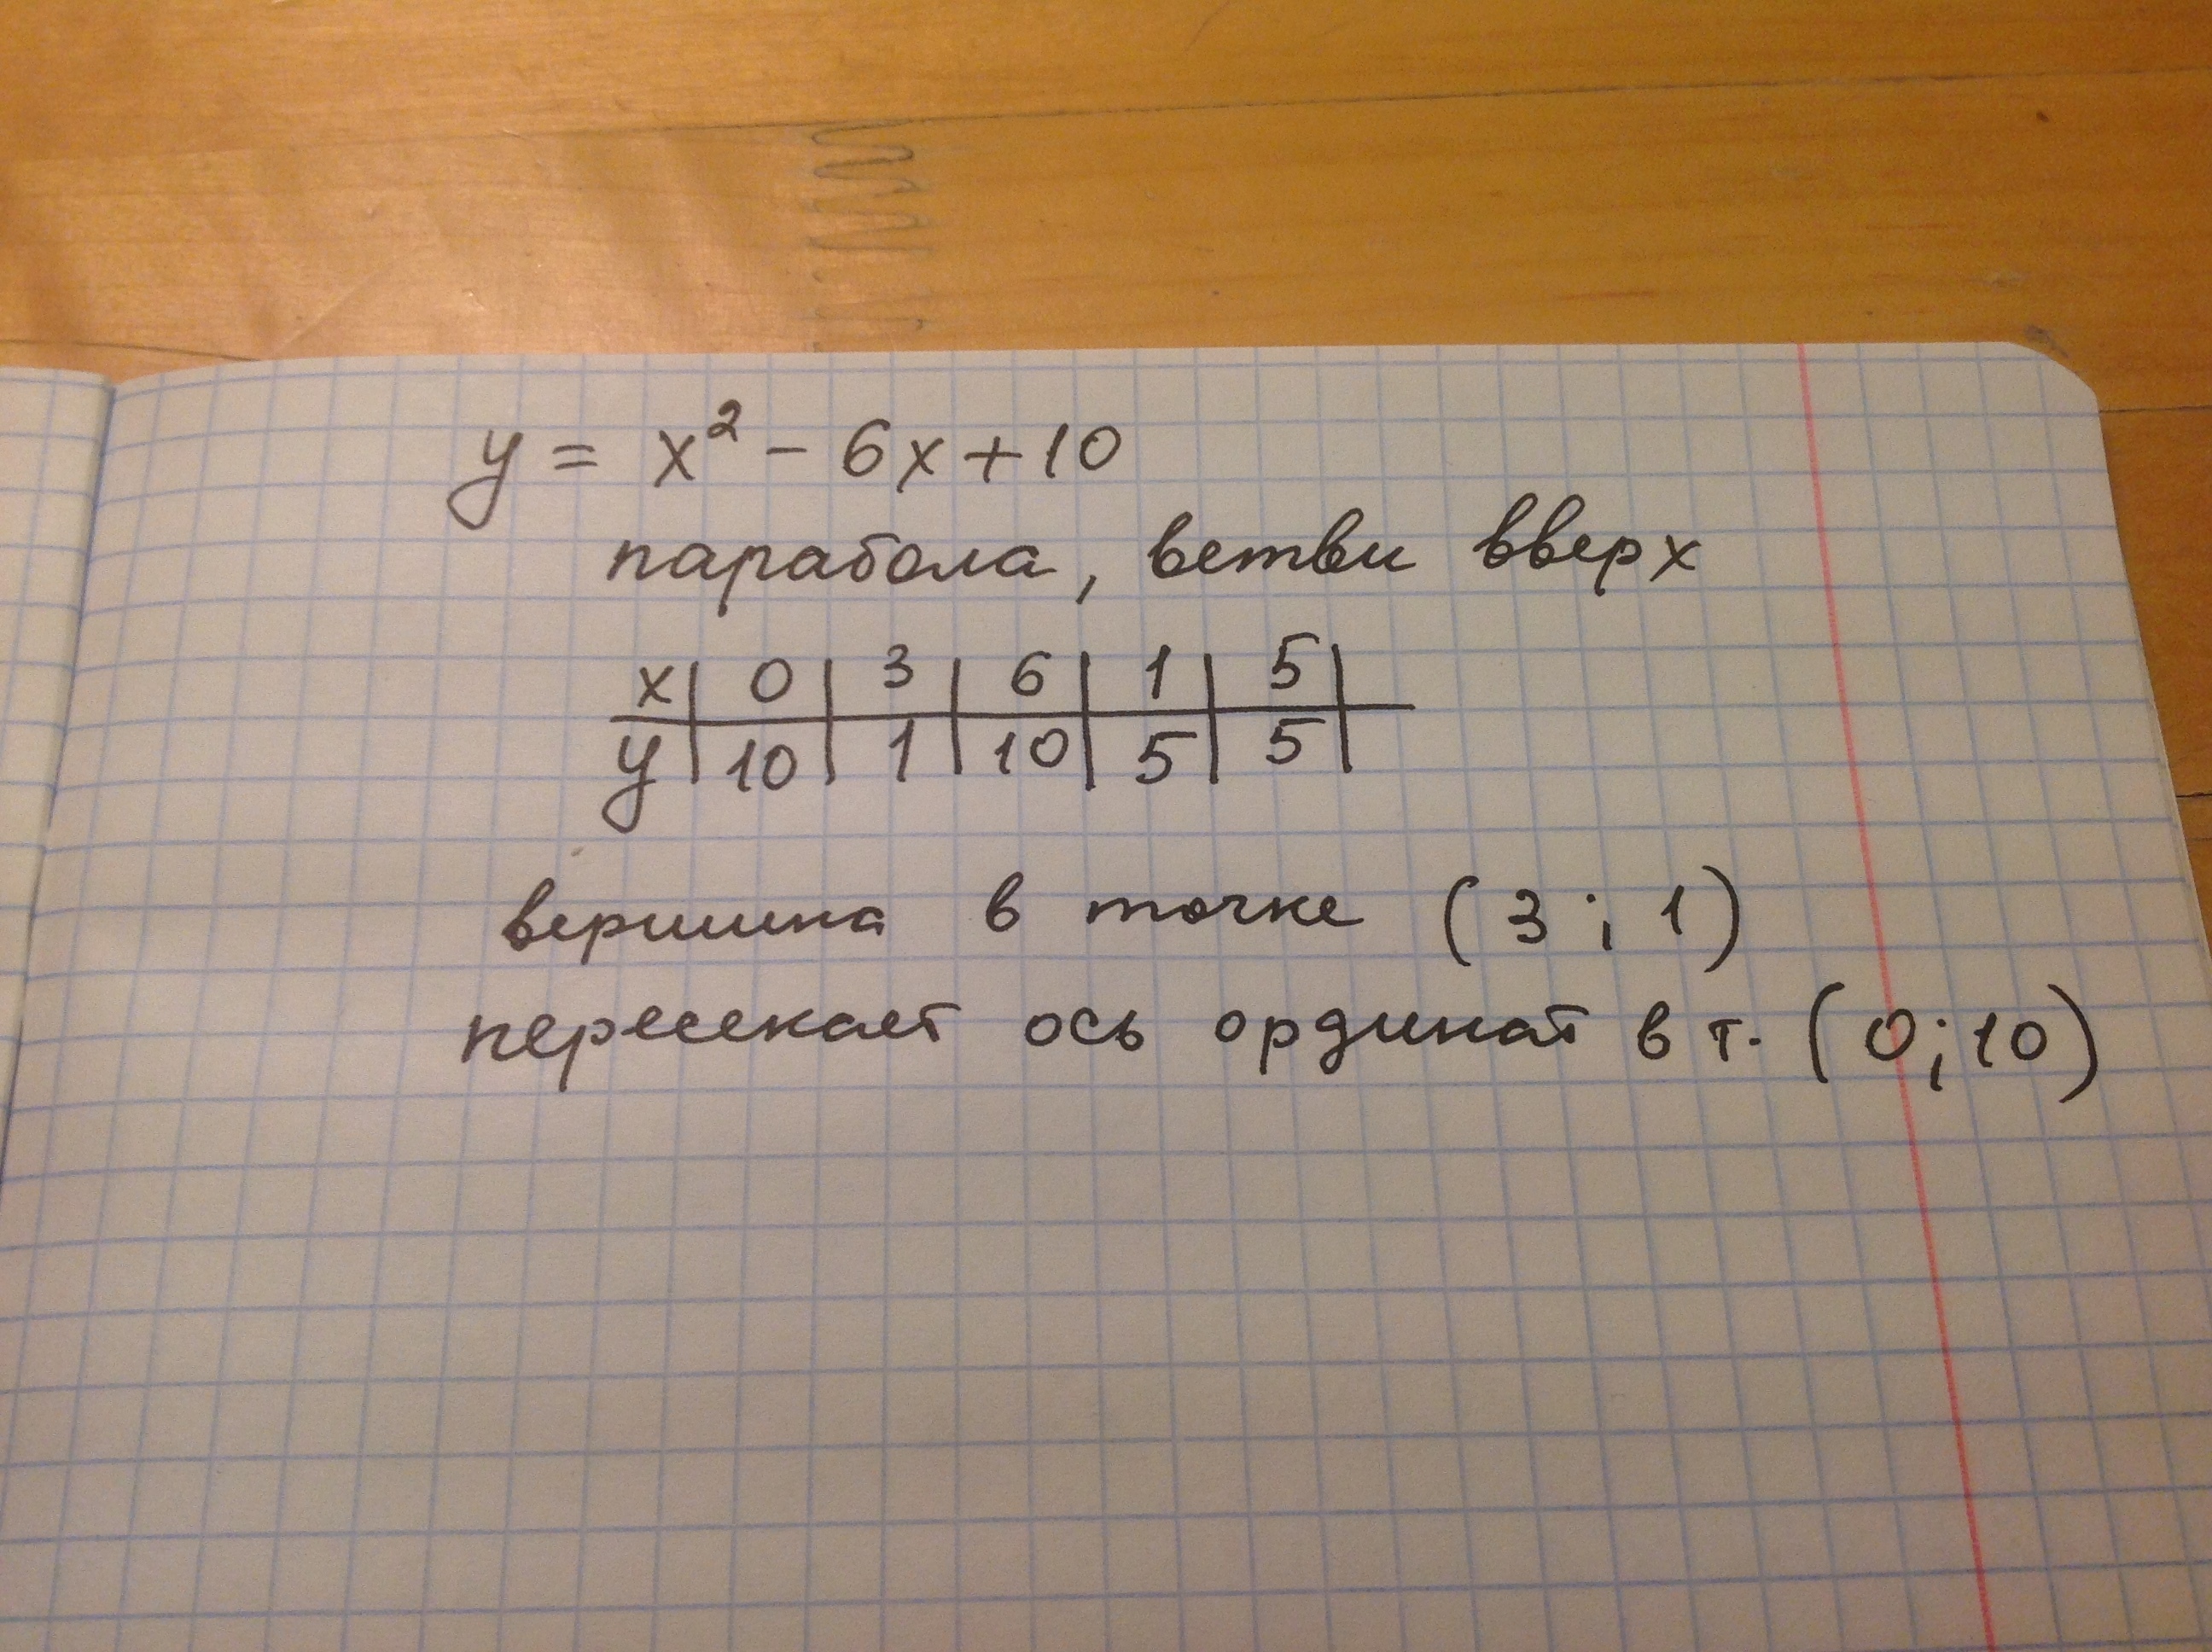 y = x² - 6x + 10
парабола, ветви вверх
x | 0 | 3 | 6 | 1 | 5 |
y | 10 | 1 | 10 | 5 | 5 |
вершина в точке (3; 1)
пересекает ось ординат в т. (0; 10)